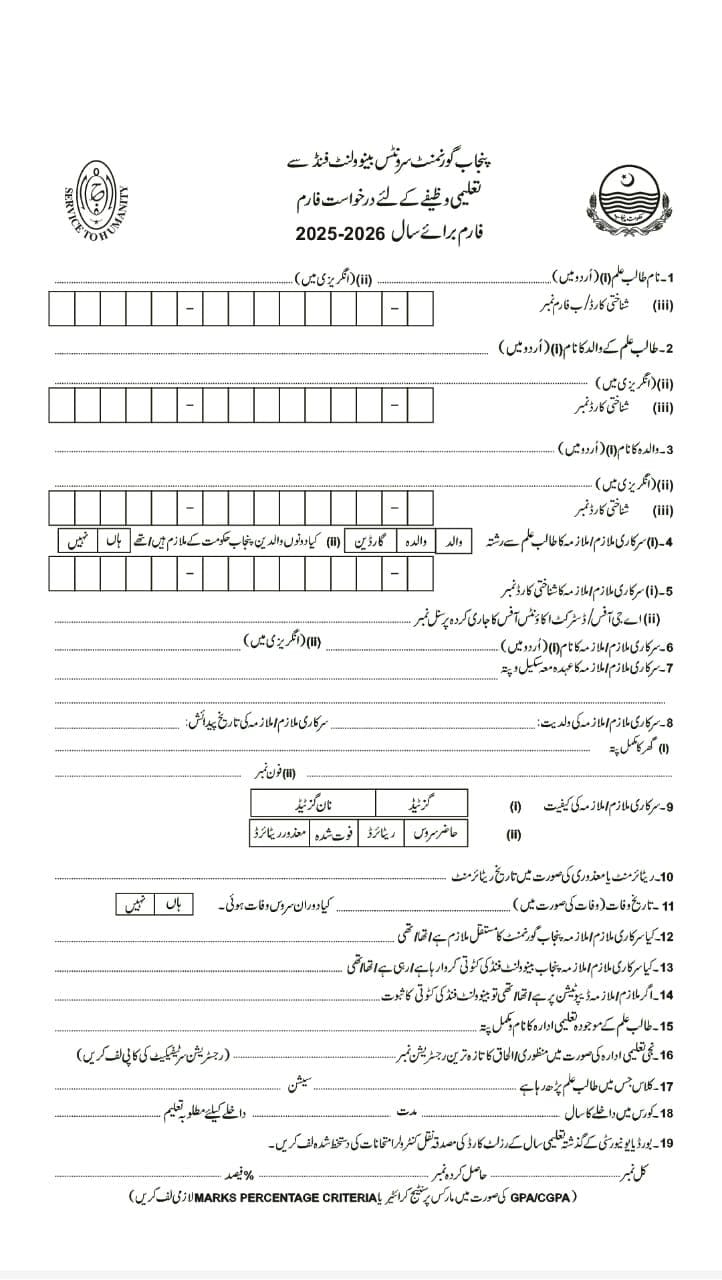 پنجاب گورنمنٹ سرونٹس بینوولنٹ فنڈ سے
تعلیمی وظیفے کے لئے درخواست فارم
فارم برائے سال 2025-2026
SERVICE TO HUMANITY
حکومت پنجاب
1۔ نام طالب علم (i) (اُردو میں) (ii) (انگریزی میں)
(iii) شناختی کارڈ/ب فارم نمبر – –
2۔ طالب علم کے والد کا نام (i) (اُردو میں)
(ii) (انگریزی میں)
(iii) شناختی کارڈ نمبر – –
3۔ والدہ کا نام (i) (اُردو میں)
(ii) (انگریزی میں)
(iii) شناختی کارڈ نمبر – –
4۔ (i) سرکاری ملازم/ملازمہ کا طالب علم سے رشتہ والد والدہ گارڈین (ii) کیا دونوں والدین پنجاب حکومت کے ملازم ہیں/تھے ہاں نہیں
5۔ (i) سرکاری ملازم/ملازمہ کا شناختی کارڈ نمبر – –
(ii) اے جی آفس/ڈسٹرکٹ اکاؤنٹس آفس کا جاری کردہ پرسنل نمبر
6۔ سرکاری ملازم/ملازمہ کا نام (i) (اُردو میں) (ii) (انگریزی میں)
7۔ سرکاری ملازم/ملازمہ کا عہدہ معہ سکیل و پتہ
8۔ سرکاری ملازم/ملازمہ کی ولدیت: سرکاری ملازم/ملازمہ کی تاریخ پیدائش:
(i) گھر کا مکمل پتہ
(ii) فون نمبر
9۔ سرکاری ملازم/ملازمہ کی کیفیت (i) گزٹیڈ نان گزٹیڈ
(ii) حاضر سروس ریٹائرڈ فوت شدہ معذور ریٹائرڈ
10۔ ریٹائرمنٹ یا معذوری کی صورت میں تاریخ ریٹائرمنٹ
11۔ تاریخ وفات (وفات کی صورت میں) کیا دوران سروس وفات ہوئی۔ ہاں نہیں
12۔ کیا سرکاری ملازم/ملازمہ پنجاب گورنمنٹ کا مستقل ملازم ہے/تھا/تھی
13۔ کیا سرکاری ملازم/ملازمہ پنجاب بینوولنٹ فنڈ کی کٹوتی کروا رہا ہے/رہی ہے/تھا/تھی
14۔ اگر ملازم/ملازمہ ڈیپوٹیشن پر ہے/تھا/تھی تو بینوولنٹ فنڈ کی کٹوتی کا ثبوت
15۔ طالب علم کے موجودہ تعلیمی ادارہ کا نام و مکمل پتہ
16۔ نجی تعلیمی ادارہ کی صورت میں منظوری/الحاق کا تازہ ترین رجسٹریشن نمبر (رجسٹریشن سرٹیفکیٹ کی کاپی لف کریں)
17۔ کلاس جس میں طالب علم پڑھ رہا ہے سیشن
18۔ کورس میں داخلے کا سال مدت داخلے کیلئے مطلوبہ تعلیم
19۔ بورڈ یا یونیورسٹی کے گذشتہ تعلیمی سال کے رزلٹ کارڈ کی مصدقہ نقل کنٹرولر امتحانات کی دستخط شدہ لف کریں۔
کل نمبر حاصل کردہ نمبر %فیصد
(GPA/CGPA کی صورت میں مارکس پرسنٹیج کرائٹیریا MARKS PERCENTAGE CRITERIA لازمی لف کریں)